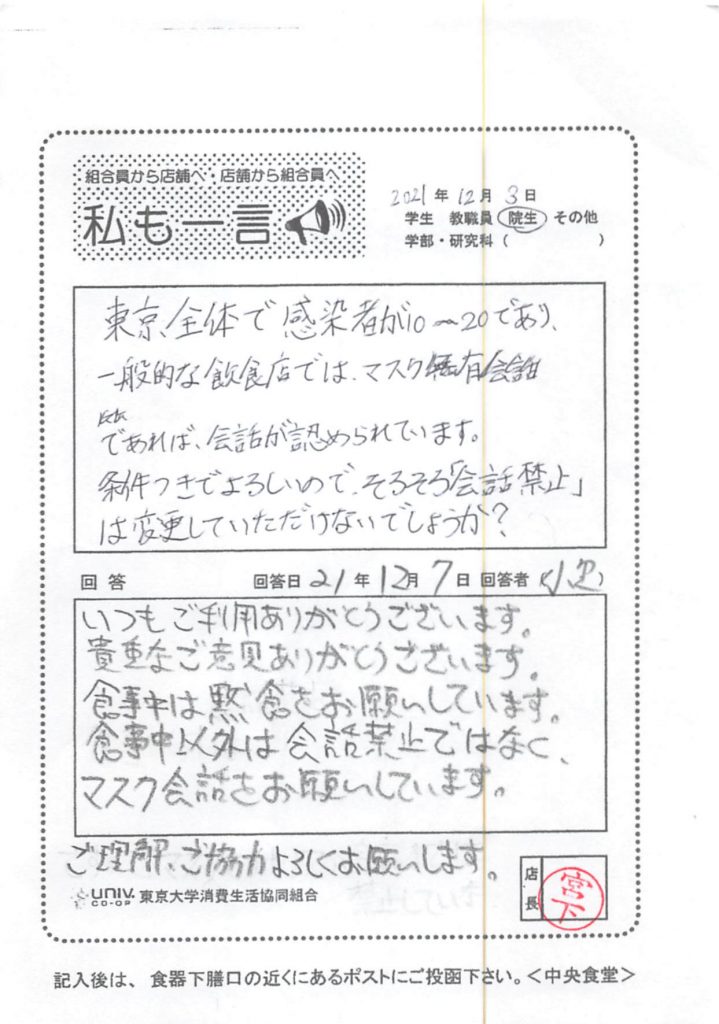 組合員から店舗へ・店舗から組合員へ
私も一言
2021年12月3日
学生 教職員 院生 その他
学部・研究科( )
東京全体で感染者が10〜20であり、
一般的な飲食店では、マスク有会話
であれば、会話が認められています。
条件つきでよろしいので、そろそろ「会話禁止」
は変更していただけないでしょうか?
回答 回答日21年12月7日 回答者( )
いつもご利用ありがとうございます。
貴重なご意見ありがとうございます。
食事中は黙食をお願いしています。
食事中以外は会話禁止ではなく、
マスク会話をお願いしています。
ご理解、ご協力よろしくお願いします。
UNIV. CO-OP 東京大学消費生活協同組合
店長 宮下
記入後は、食器下膳口の近くにあるポストにご投函下さい。<中央食堂>